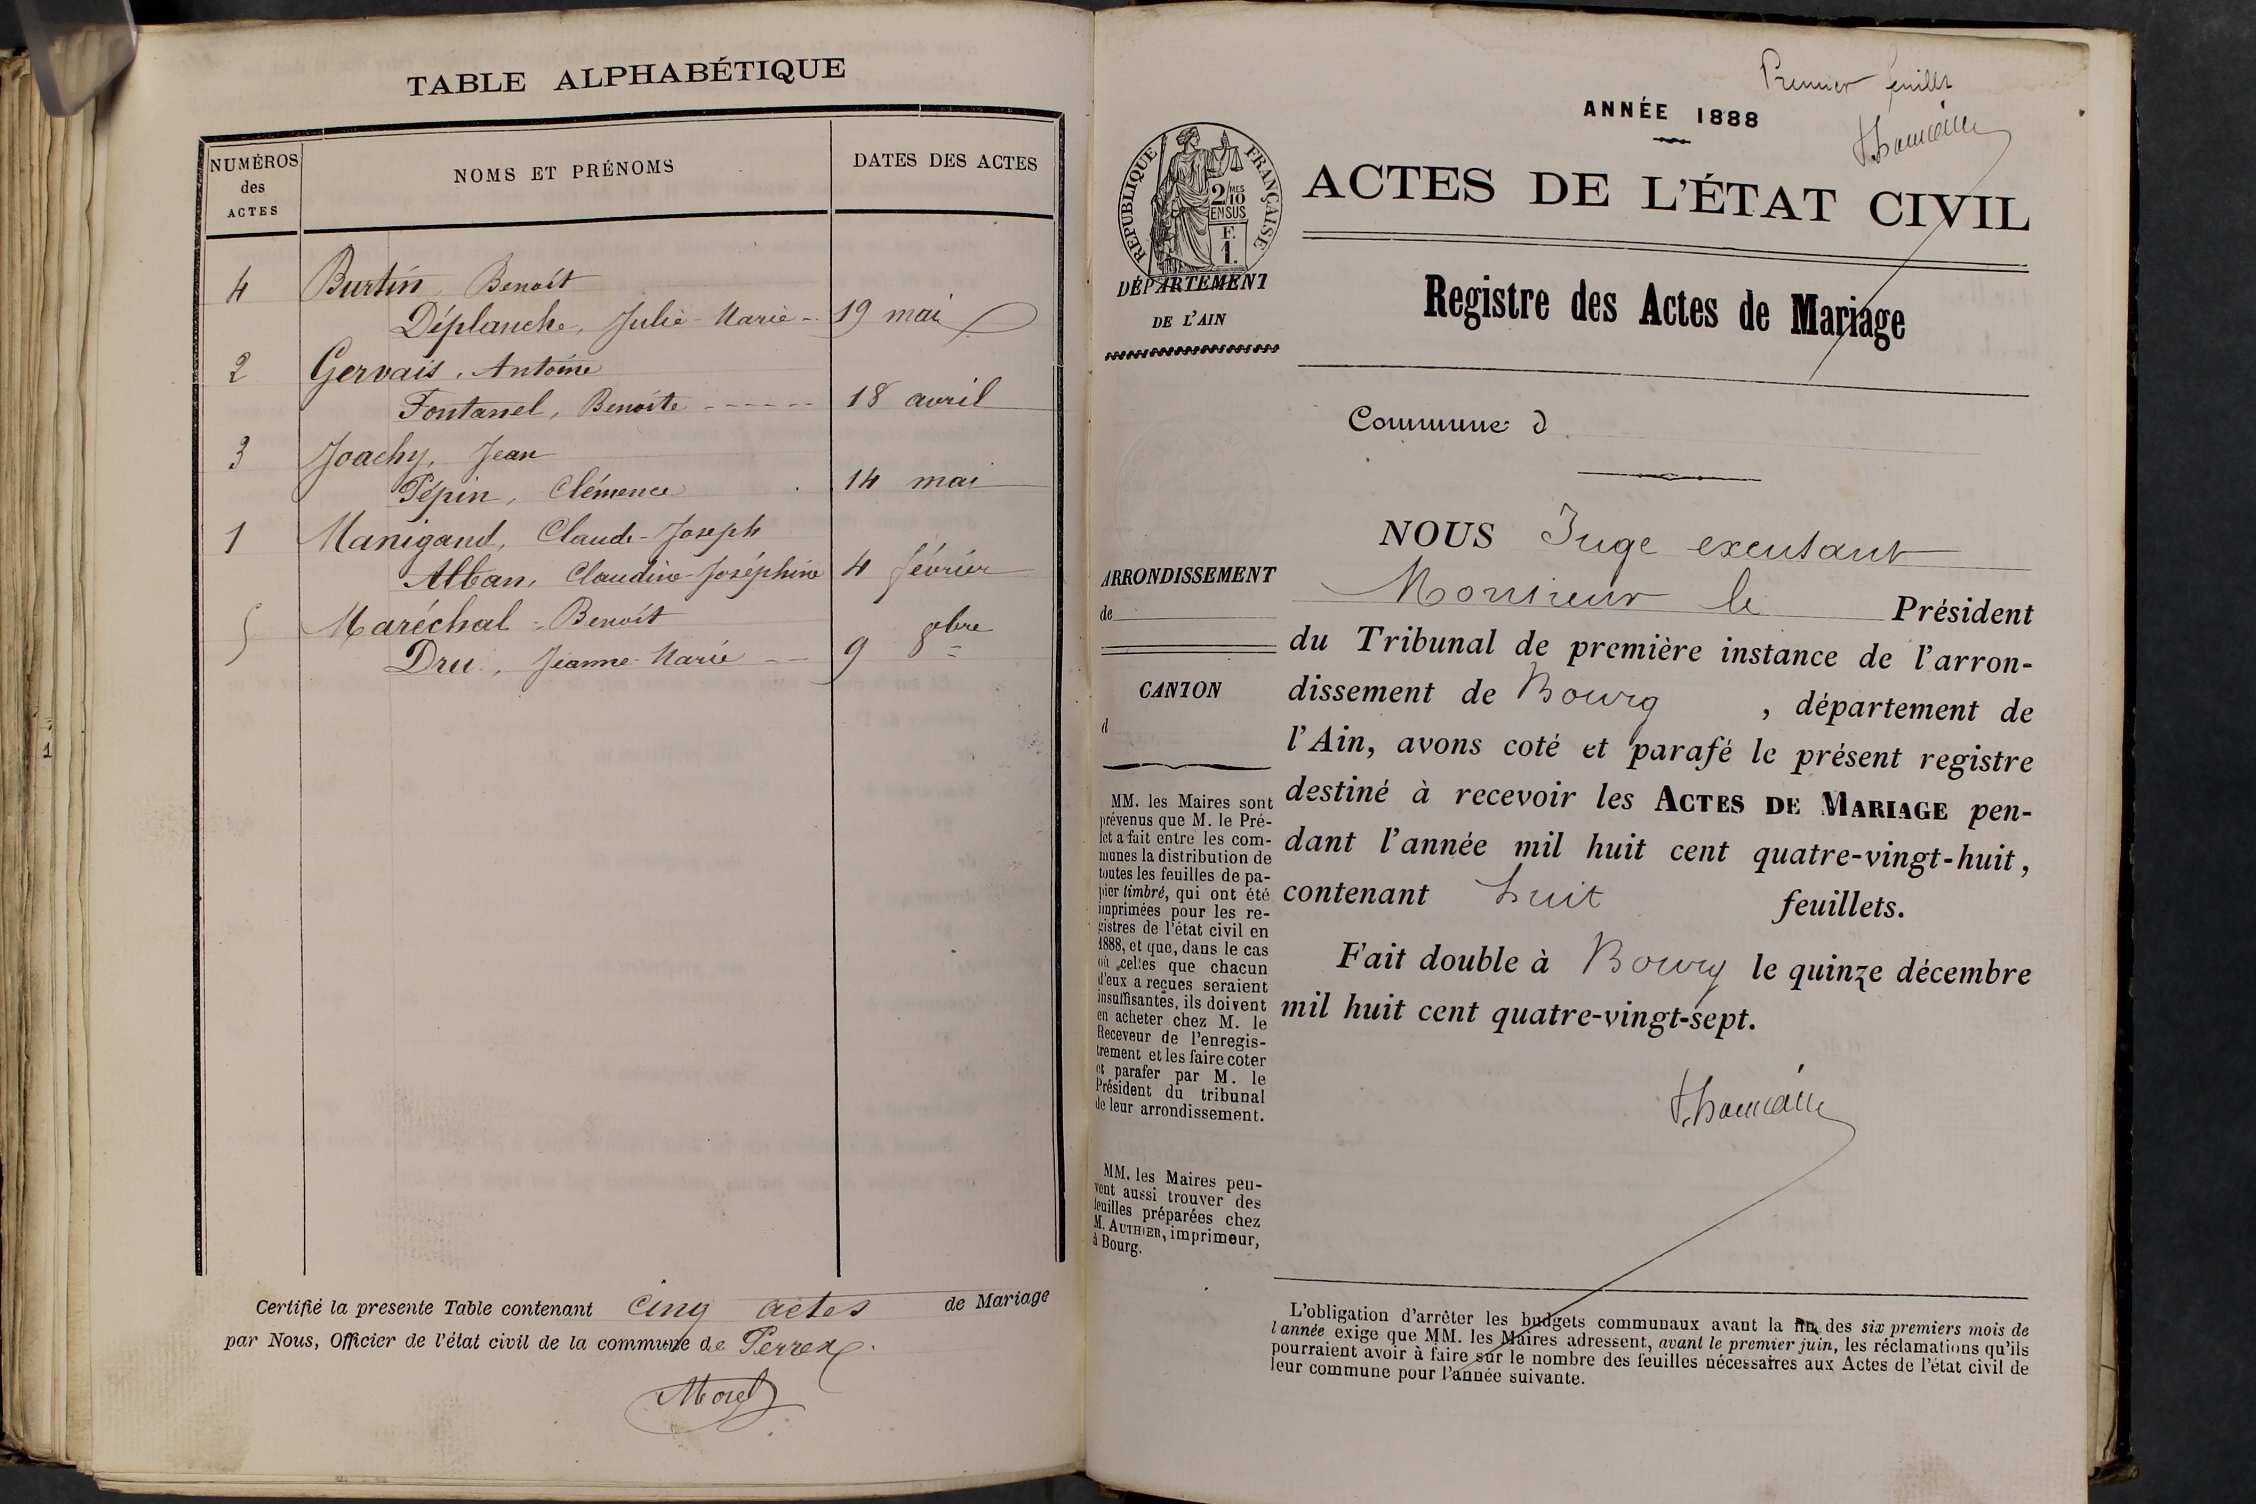 TABLE ALPHABÉTIQUE
NUMÉROS
des
ACTES
NOMS ET PRÉNOMS
DATES DES ACTES
4 Burtin, Benoît
Déplanche, Julie-Marie - 19 mai
2 Gervais, Antoine
Fontanel, Benoîte ----- 18 avril
3 Joachy, Jean
Pépin, Clémence 14 mai
1 Manigand, Claude-Joseph
Alban, Claudine-Joséphine 4 février
5 Maréchal, Benoît
Dru, Jeanne-Marie -- 9 8bre
Certifié la presente Table contenant cinq actes de Mariage
par Nous, Officier de l'état civil de la commune de Perrex.
Morel
1
Premier feuillet
ANNÉE 1888
ACTES DE L'ÉTAT CIVIL
RÉPUBLIQUE FRANÇAISE
2/10 MES
EN SUS
F.
1.
DÉPARTEMENT
DE L'AIN
Registre des Actes de Mariage
Commune d
ARRONDISSEMENT
de
CANTON
d
MM. les Maires sont
prévenus que M. le Pré-
fet a fait entre les com-
munes la distribution de
toutes les feuilles de pa-
pier timbré, qui ont été
imprimées pour les re-
gistres de l'état civil en
1888, et que, dans le cas
où celles que chacun
d'eux a reçues seraient
insuffisantes, ils doivent
en acheter chez M. le
Receveur de l'enregis-
trement et les faire coter
et parafer par M. le
Président du tribunal
de leur arrondissement.
MM. les Maires peu-
vent aussi trouver des
feuilles préparées chez
M. AUTHIER, imprimeur,
à Bourg.
NOUS Juge excusant
Monsieur le Président
du Tribunal de première instance de l'arron-
dissement de Bourg , département de
l'Ain, avons coté et parafé le présent registre
destiné à recevoir les ACTES DE MARIAGE pen-
dant l'année mil huit cent quatre-vingt-huit,
contenant huit feuillets.
Fait double à Bourg le quinze décembre
mil huit cent quatre-vingt-sept.
L'obligation d'arrêter les budgets communaux avant la fin des six premiers mois de
l'année exige que MM. les Maires adressent, avant le premier juin, les réclamations qu'ils
pourraient avoir à faire sur le nombre des feuilles nécessaires aux Actes de l'état civil de
leur commune pour l'année suivante.